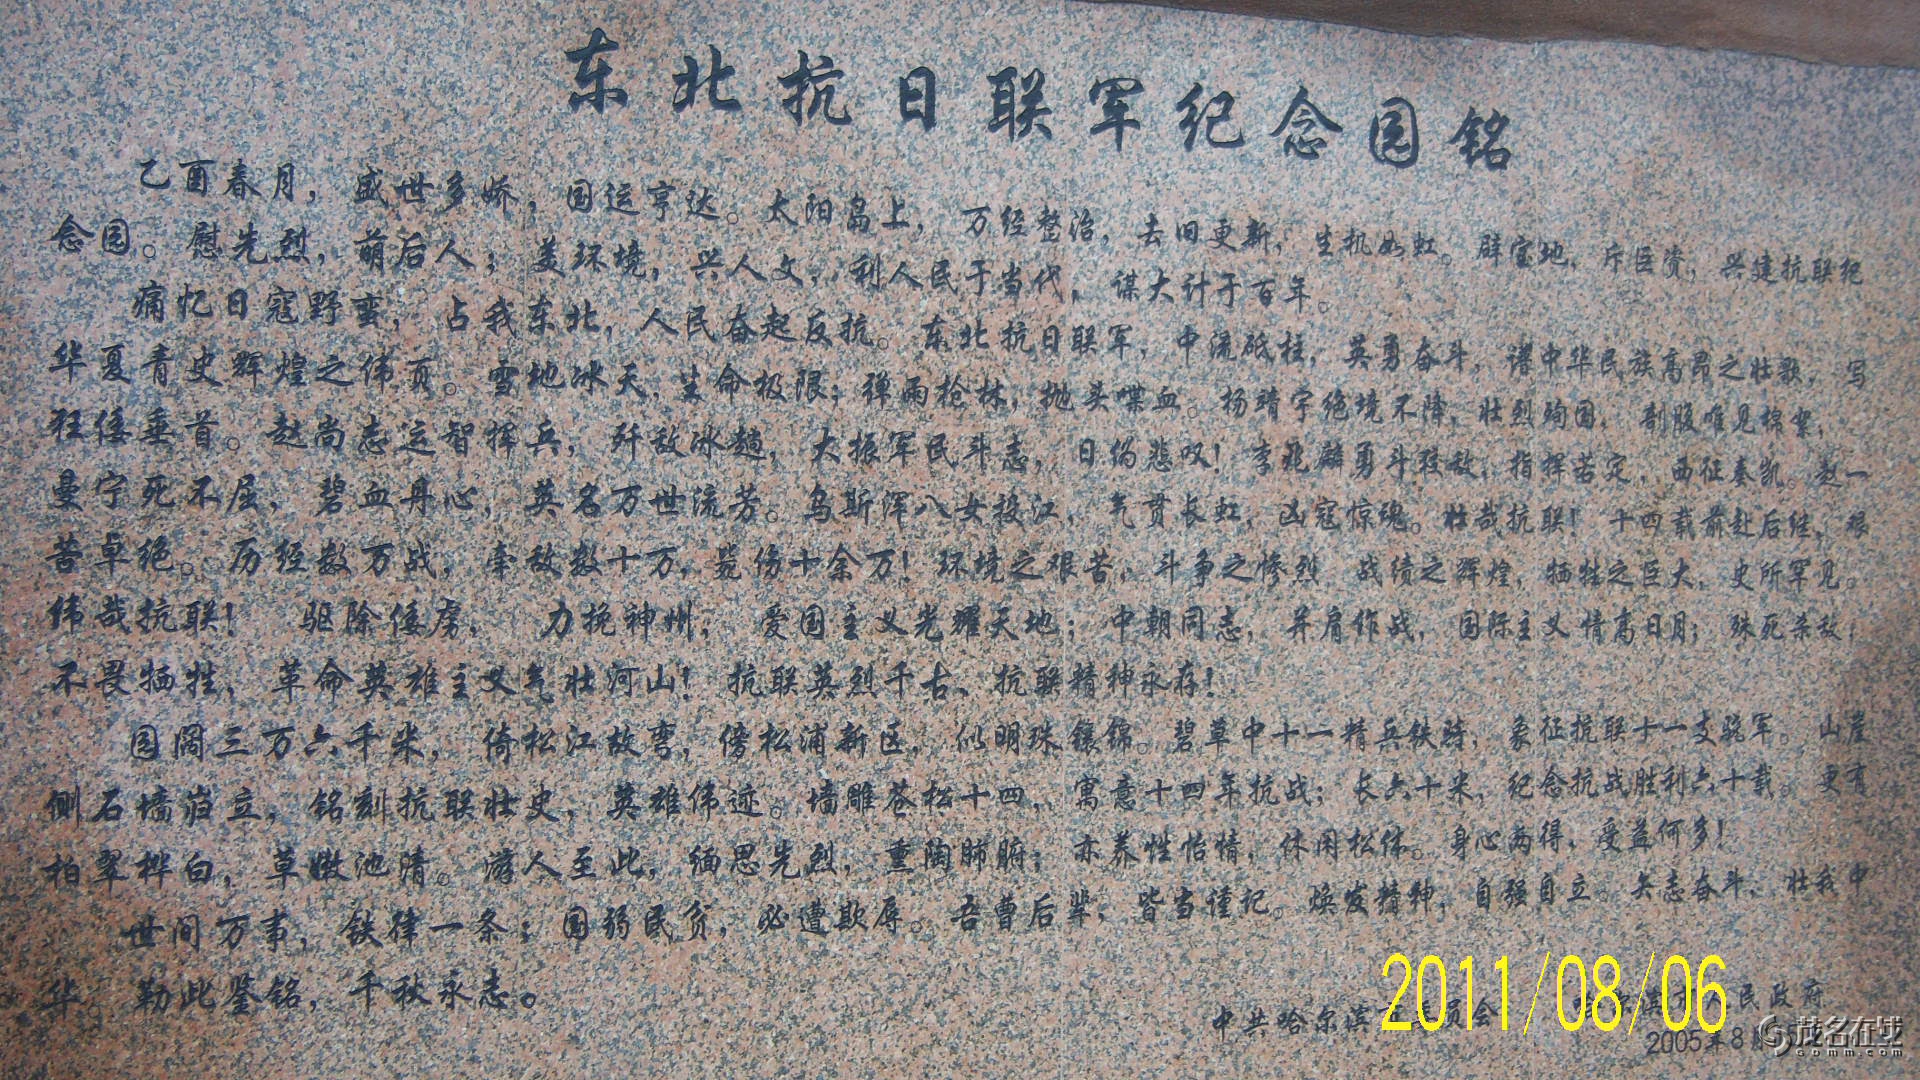 东北抗日联军纪念园铭
乙酉春月，盛世多娇，国运亨达。太阳岛上，万经整治，去旧更新，生机如虹。辟宝地，斥巨资，兴建抗联纪
念园。慰先烈，萌后人；美环境，兴人文，利人民于当代，谋大计于百年。
痛忆日寇野蛮，占我东北，人民奋起反抗。东北抗日联军，中流砥柱，英勇奋斗，谱中华民族高昂之壮歌，写
华夏青史辉煌之伟页。雪地冰天，生命极限；弹雨枪林，抛头喋血。杨靖宇绝境不降，壮烈殉国，剖腹唯见棉絮，
狂倭垂首。赵尚志运智挥兵，歼敌冰趟，大振军民斗志，日伪悲叹！李兆麟勇斗狡敌，指挥若定，西征奏凯。赵一
曼宁死不屈，碧血丹心，英名万世流芳。乌斯浑八女投江，气贯长虹，凶寇惊魂。壮哉抗联！十四载前赴后继，艰
苦卓绝。历经数万战，牵敌数十万，毙伤十余万！环境之艰苦，斗争之惨烈 战绩之辉煌，牺牲之巨大，史所罕见。
伟哉抗联！驱除倭虏，力挽神州，爱国主义光耀天地；中朝同志，并肩作战，国际主义情高日月；殊死杀敌，
不畏牺牲，革命英雄主义气壮河山！抗联英烈千古、抗联精神永存！
园阔三万六千米，倚松江故弯，傍松浦新区，似明珠镶锦。碧草中十一精兵铁骑，象征抗联十一支骁军。山崖
侧石墙岿立，铭刻抗联壮史，英雄伟迹。墙雕苍松十四，寓意十四年抗战；长六十米，纪念抗战胜利六十载。更有
柏翠桦白，草嫩池清。游人至此，缅思先烈，熏陶肺腑；亦养性怡情，休闲松体。身心两得，受益何多！
世间万事，铁律一条：国弱民贫，必遭欺辱。吾曹后辈，皆当谨记。焕发精神，自强自立。矢志奋斗，壮我中
华。勒此鉴铭，千秋永志。
中共哈尔滨 员会 人民政府
2005年8月
2011/08/06
茂名在线
Gomm.com